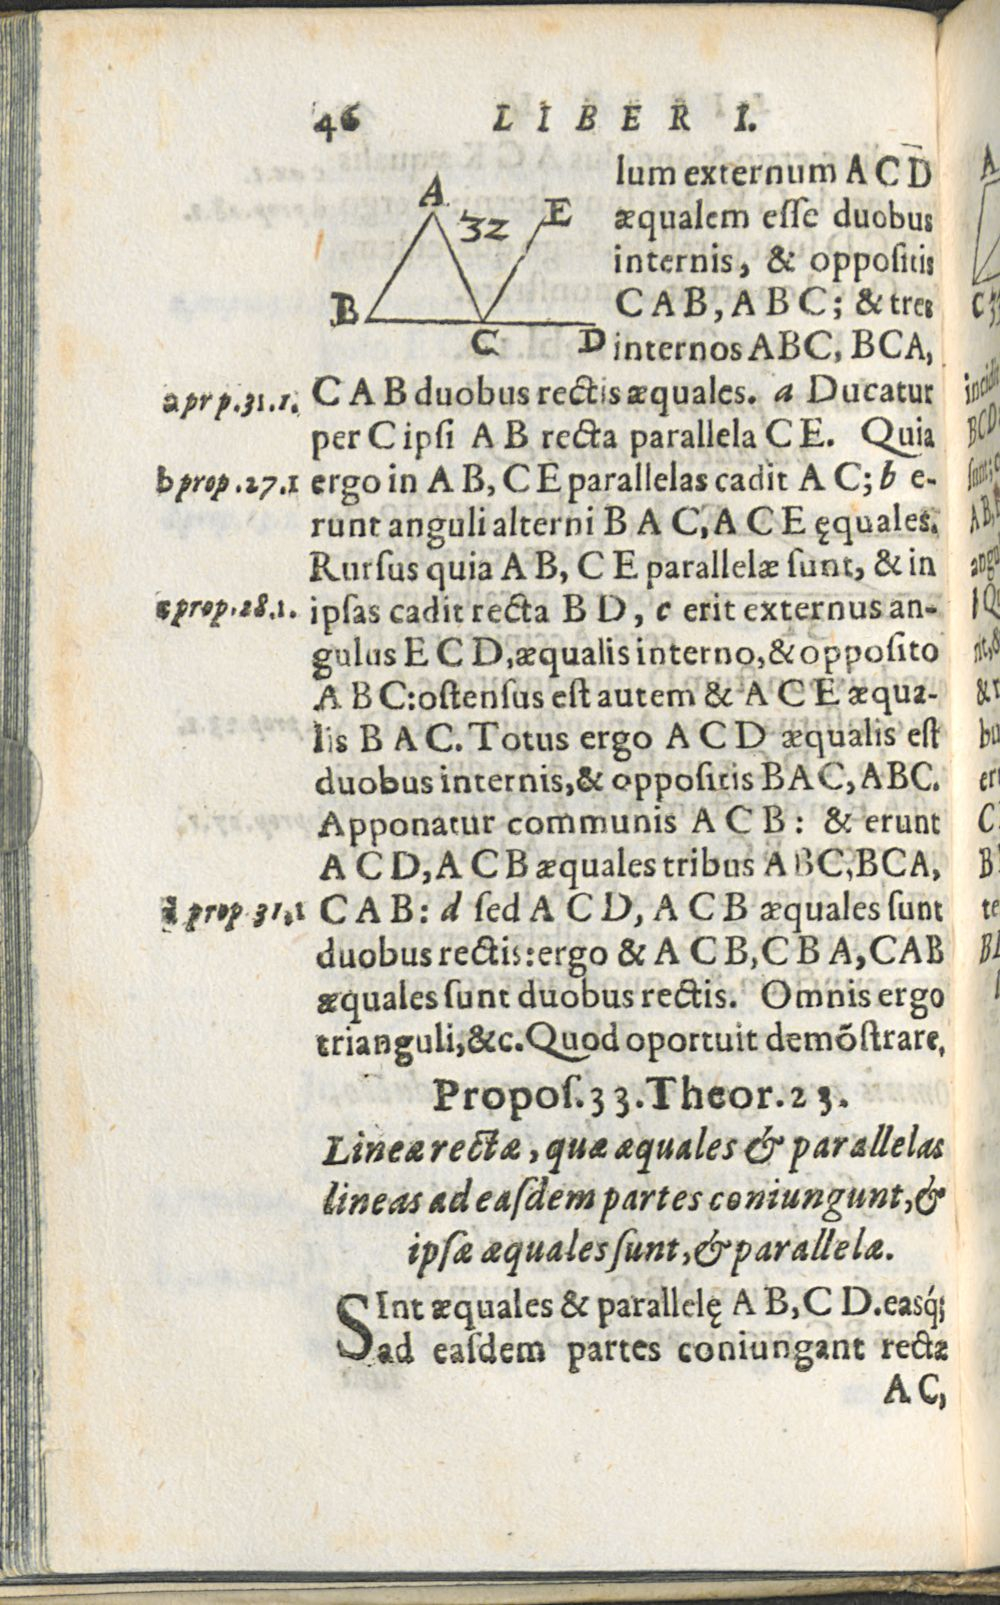 46 LIBER I.
lum externum A C D
æqualem eſſe duobus
internis, & oppoſitis
C A B, A B C; & tres
internos ABC, BCA,
A
32
E
B
C
D
a prop.31.1. C A B duobus rectis æquales. a Ducatur
per C ipſi A B recta parallela C E. Quia
b prop.27.1 ergo in A B, C E parallelas cadit A C; b e-
runt anguli alterni B A C, A C E ęquales.
Rurſus quia A B, C E parallelæ ſunt, & in
c prop.28.1. ipſas cadit recta B D, c erit externus an-
gulus E C D, æqualis interno, & oppoſito
A B C: oſtenſus eſt autem & A C E æqua-
lis B A C. Totus ergo A C D æqualis eſt
duobus internis, & oppoſitis BAC, ABC.
Apponatur communis A C B: & erunt
A C D, A C B æquales tribus ABC, BCA,
d prop 31.1 C A B: d ſed A C D, A C B æquales ſunt
duobus rectis: ergo & A C B, C B A, CAB
æquales ſunt duobus rectis. Omnis ergo
trianguli, &c. Quod oportuit demõſtrare,
Propoſ. 33. Theor. 23.
Lineæ rectæ, quæ æquales & parallelas
lineas ad eaſdem partes coniungunt, &
ipſæ æquales ſunt, & parallelæ.
SInt æquales & parallelę A B, C D. easq́;
ad eaſdem partes coniungant rectæ
A C,